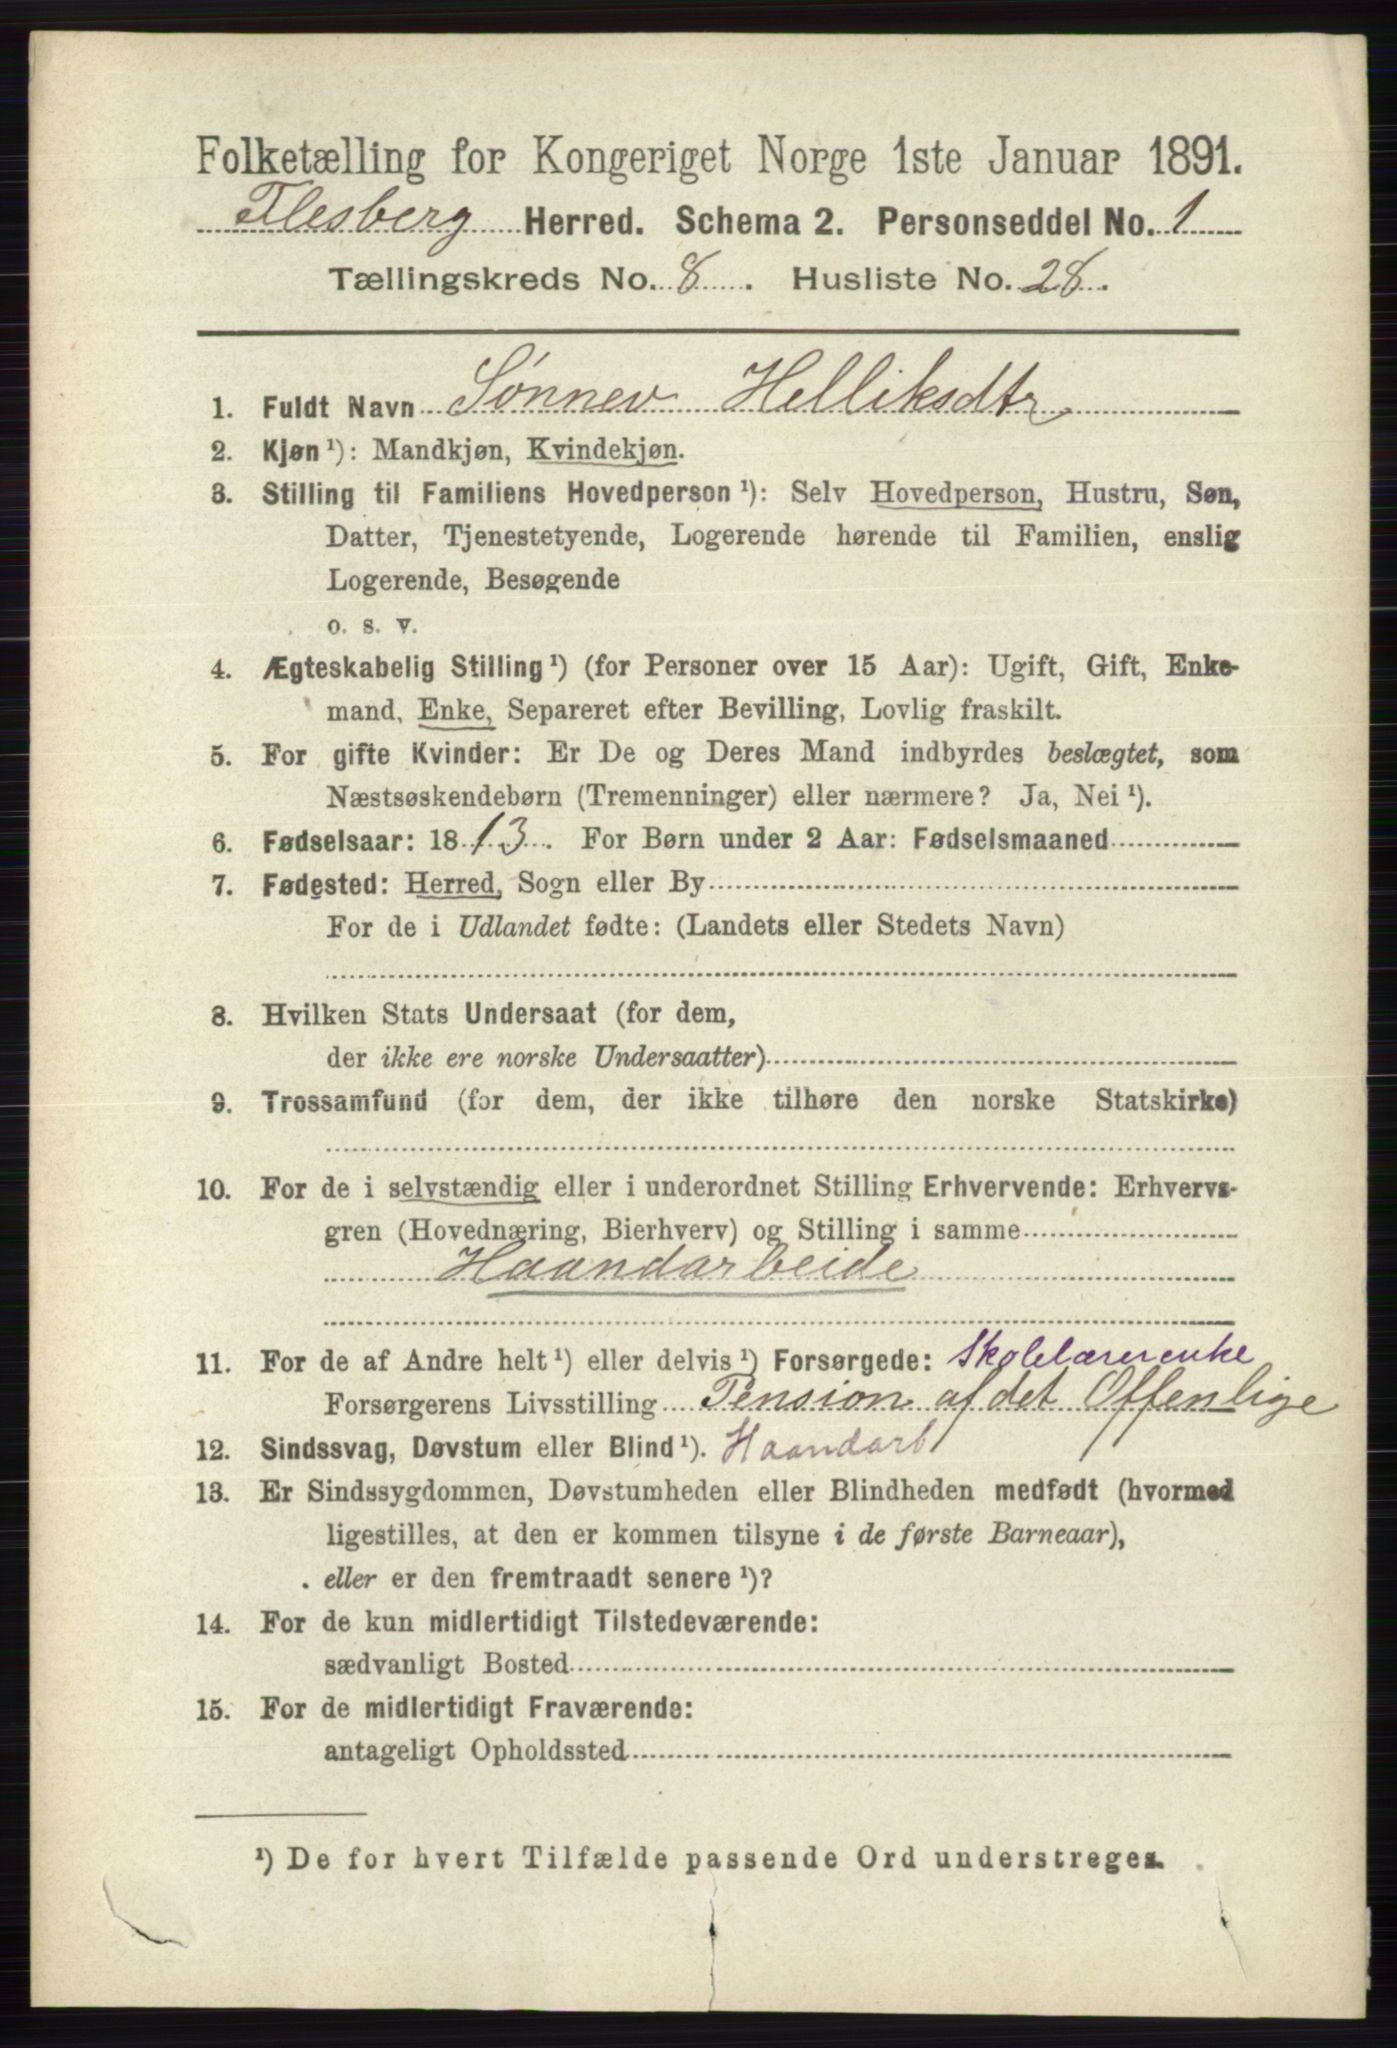 Folketælling for Kongeriget Norge 1ste Januar 1891.
Flesberg Herred. Schema 2. Personseddel No. 1
Tællingskreds No. 8. Husliste No. 28.
1. Fuldt Navn Sønnev Helliksdtr
2. Kjøn¹): Mandkjøn, Kvindekjøn.
3. Stilling til Familiens Hovedperson¹): Selv Hovedperson, Hustru, Søn,
Datter, Tjenestetyende, Logerende hørende til Familien, enslig
Logerende, Besøgende
o. s. v.
4. Ægteskabelig Stilling¹) (for Personer over 15 Aar): Ugift, Gift, Enke-
mand, Enke, Separeret efter Bevilling, Lovlig fraskilt.
5. For gifte Kvinder: Er De og Deres Mand indbyrdes beslægtet, som
Næstsøskendebørn (Tremenninger) eller nærmere? Ja, Nei¹).
6. Fødselsaar: 1813. For Børn under 2 Aar: Fødselsmaaned
7. Fødested: Herred, Sogn eller By
For de i Udlandet fødte: (Landets eller Stedets Navn)
8. Hvilken Stats Undersaat (for dem,
der ikke ere norske Undersaatter)
9. Trossamfund (for dem, der ikke tilhøre den norske Statskirke)
10. For de i selvstændig eller i underordnet Stilling Erhvervende: Erhvervs-
gren (Hovednæring, Bierhverv) og Stilling i samme
Haandarbeide
11. For de af Andre helt¹) eller delvis¹) Forsørgede: Skolelærerenke
Forsørgerens Livsstilling Pension af det Offenlige
12. Sindssvag, Døvstum eller Blind¹). Haandarb
13. Er Sindssygdommen, Døvstumheden eller Blindheden medfødt (hvormed
ligestilles, at den er kommen tilsyne i de første Barneaar),
eller er den fremtraadt senere¹)?
14. For de kun midlertidigt Tilstedeværende:
sædvanligt Bosted
15. For de midlertidigt Fraværende:
antageligt Opholdssted
¹) De for hvert Tilfælde passende Ord understreges.